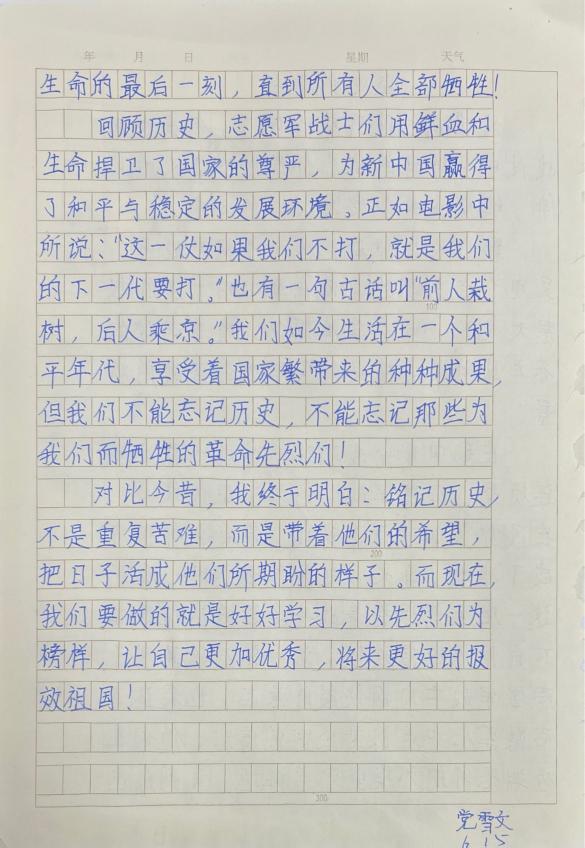 年 月 日 星期 天气
生命的最后一刻，直到所有人全部牺牲！
回顾历史，志愿军战士们用鲜血和
生命捍卫了国家的尊严，为新中国赢得
了和平与稳定的发展环境。正如电影中
所说：“这一仗如果我们不打，就是我们
的下一代要打。”也有一句古话叫“前人栽
100
树，后人乘凉。”我们如今生活在一个和
平年代，享受着国家繁带来的种种成果，
但我们不能忘记历史，不能忘记那些为
我们而牺牲的革命先烈们！
对比今昔，我终于明白：铭记历史，
不是重复苦难，而是带着他们的希望，
200
把日子活成他们所期盼的样子。而现在，
我们要做的就是好好学习，以先烈们为
榜样，让自己更加优秀，将来更好的报
效祖国！
300
党雪文
6.15